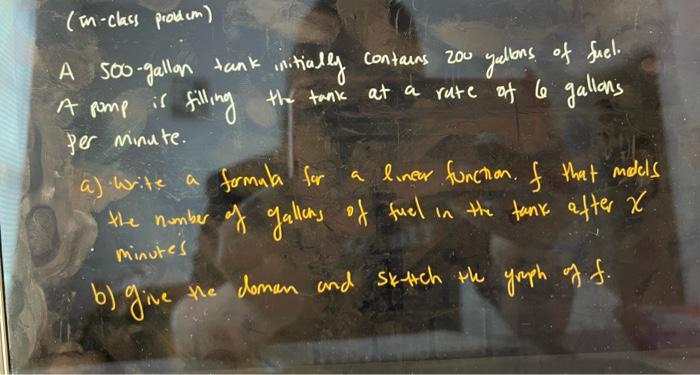 (in-class problem)
A 500-gallon tank initially contains 200 gallons of fuel.
A pump is filling the tank at a rate of 6 gallons
per minute.
a) write a formula for a linear function f that models
the number of gallons of fuel in the tank after x
minutes
b) give the domain and sketch the graph of f.